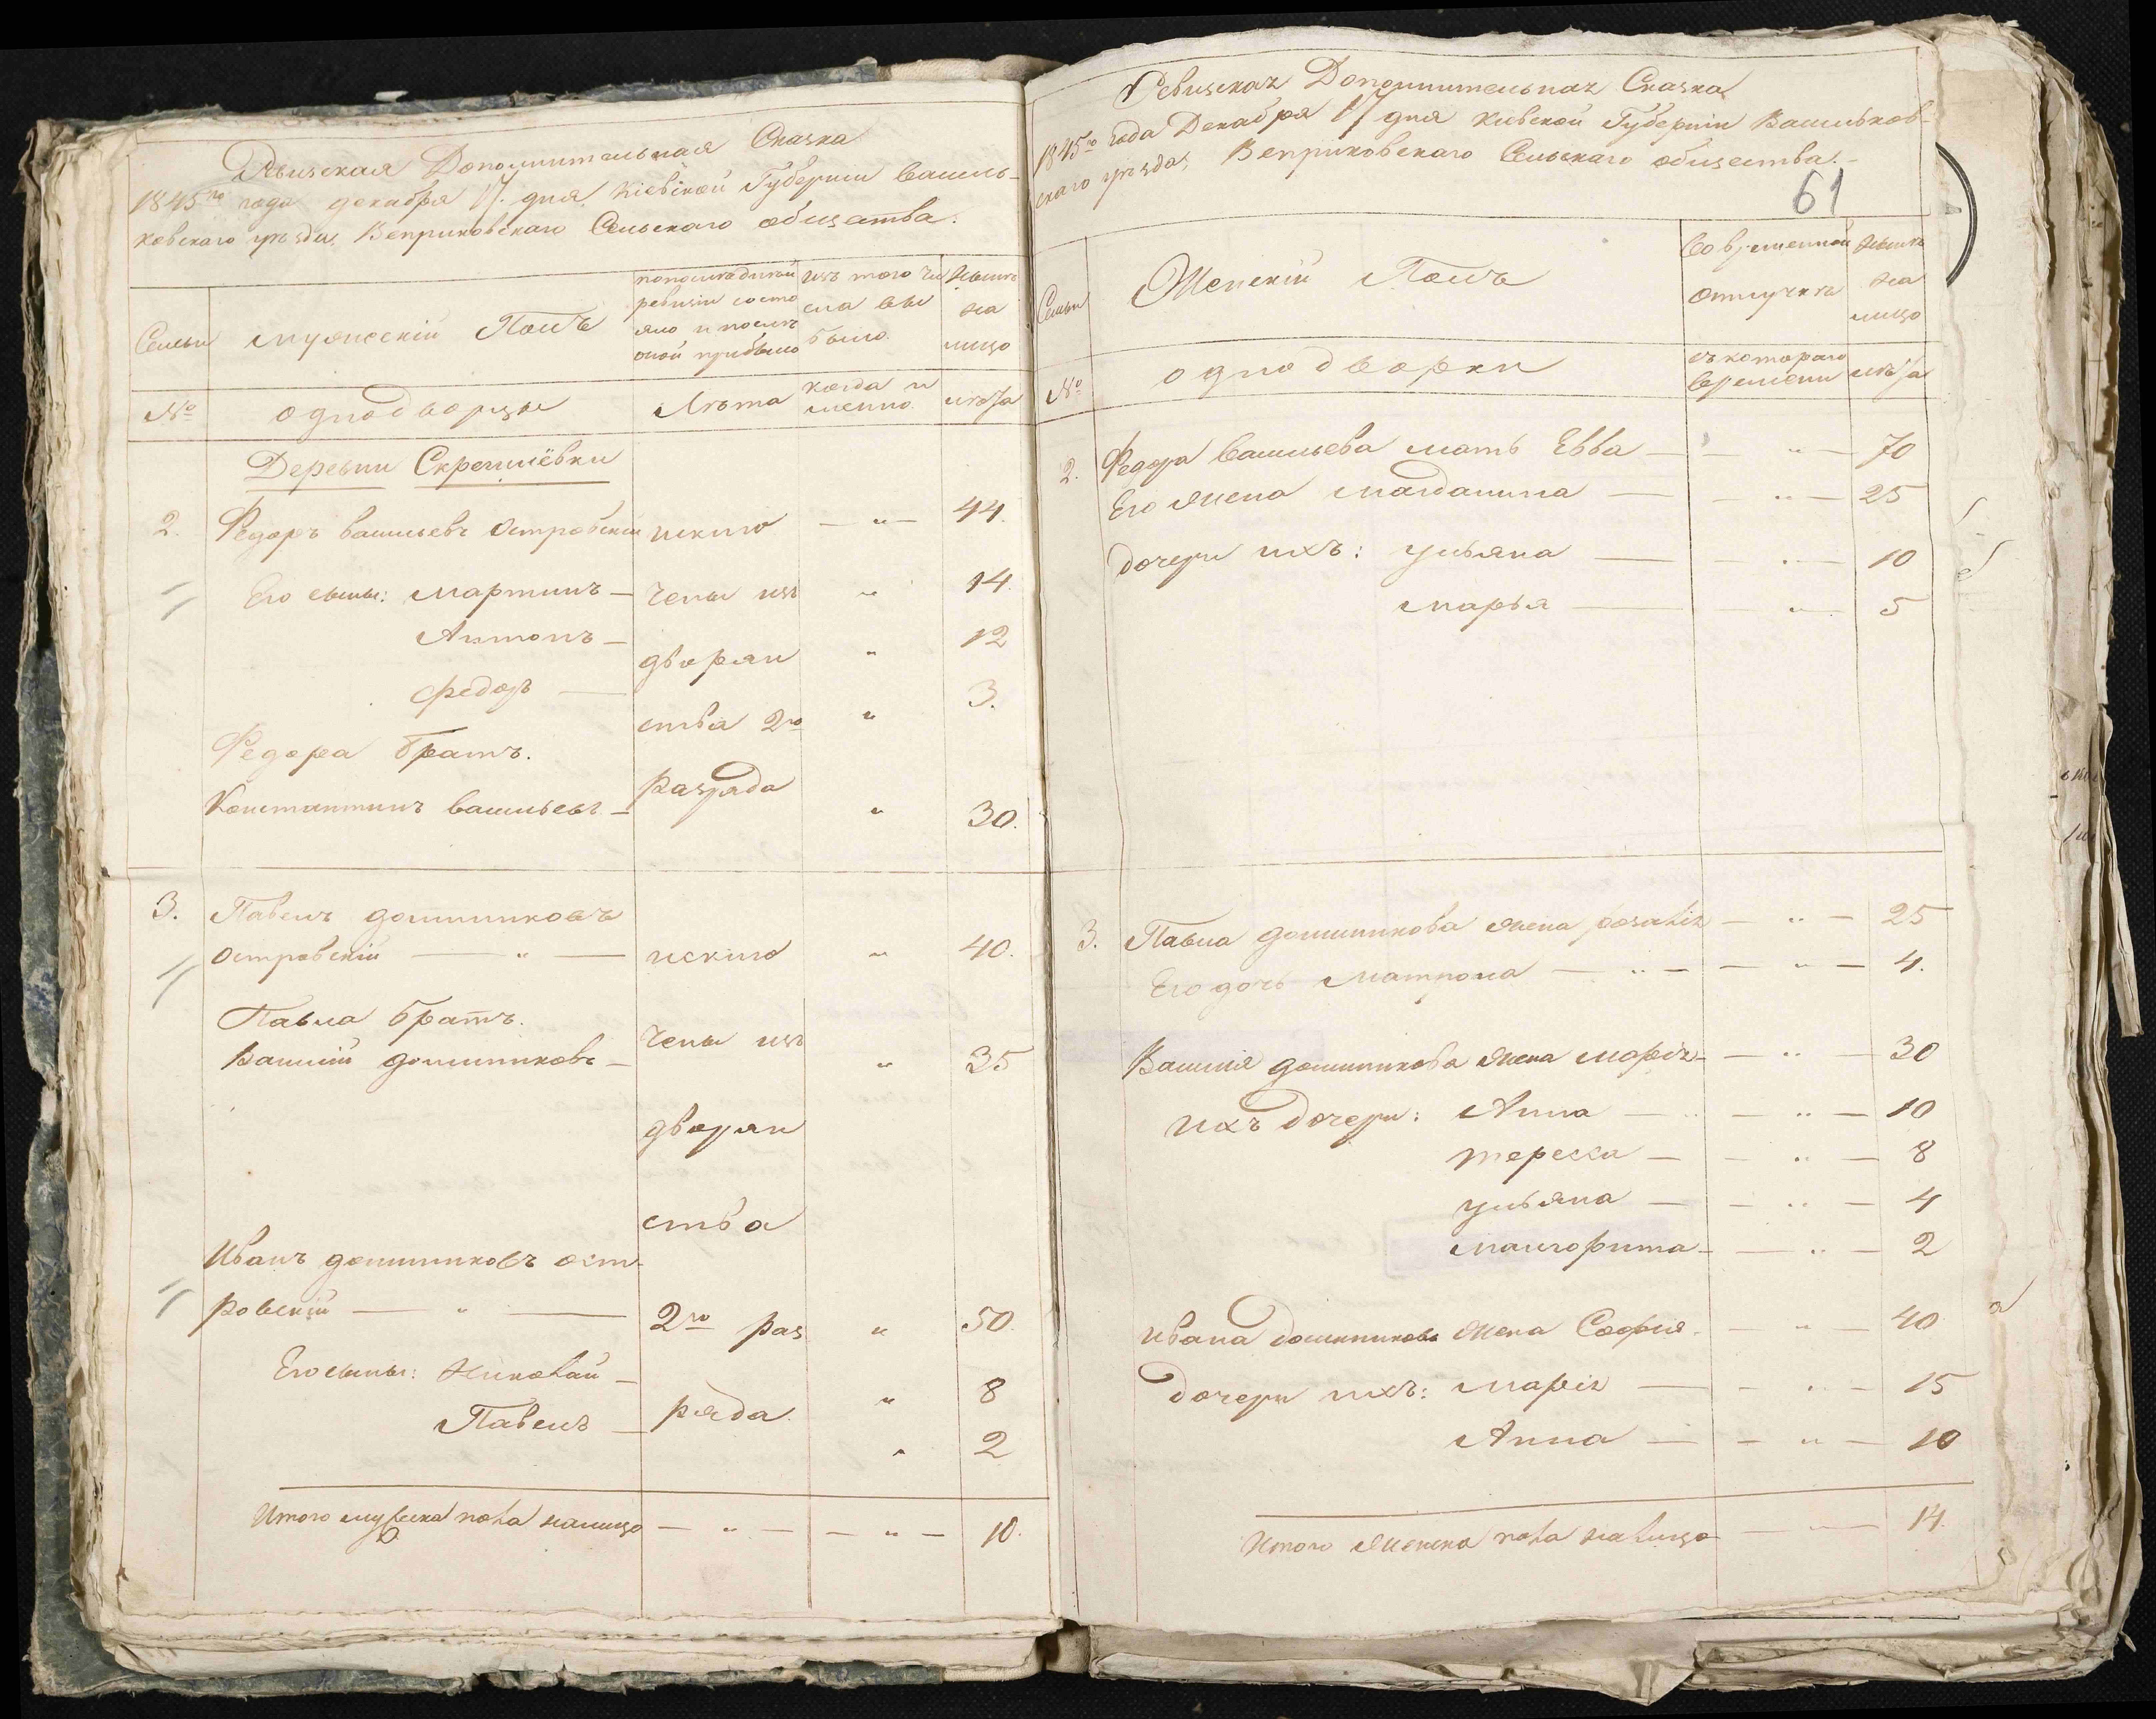 Ревизская Дополнительная Сказка
1845го года декабря 17. дня. Кіевской Губерніи Василь-
ковскаго уѣзда, Веприковскаго Сельскаго общества.
Семьи
мужескій Полъ
по последней ревизіи состояло и после оной прибыло
изъ того числа выбыло.
Нынѣ на лицо
№
однодворцы
Лѣта
когда именно
лѣта
Деревни Скрегилёвки
2. Федоръ Васильевъ Островскій исклю — „ — 44.
Его сыны: Мартинъ — чены изъ „ 14.
Антонъ — дворян „ 12
Федоръ — ства 2го „ 3.
Федора братъ.
Константинъ Васильевъ — разряда „ 30.
3. Павелъ Доминиковъ
Островскій — „ — исклю „ 40.
Павла братъ.
Василій Доминиковъ — чены изъ „ 35
дворян
ства
Иванъ Доминиковъ Ост-
ровскій — „ — 2го раз „ 50.
Его сыны: Николай — „ 8
Павелъ — ряда. „ 2
Итого мужеска пола налицо — „ — — „ — 10.
Ревизская Дополнительная Сказка
1845го года Декабря 17 дня Кіевской Губерніи Васильков-
скаго уѣзда, Веприковскаго Сельскаго общества.-
61
Семьи
Женскій Полъ
Во временной отлучкѣ
Нынѣ на лицо
№
однодворки
съ котораго времени
лѣта
2. Федора Васильева мать Евва — „ — 70
Его жена Магдалина — „ — 25
дочери ихъ: Ульяна — „ — 10
Марья — „ — 5
3. Павла Доминикова жена Розалія — „ — 25
Его дочь Матрона — „ — — „ — 4.
Василія Доминикова жена Марія — „ — 30
Ихъ дочери: Анна — „ — „ — 10
Тересса — — „ — 8
Ульяна — — „ — 4
Маргорита — — „ — 2
Ивана Доминикова жена Софія. — „ — 40
дочери ихъ: Марія — — „ — 15
Анна — — „ — 10
Итого женска пола налицо — „ — 14.